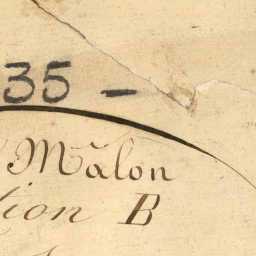 35 -
Mâlon
tion B